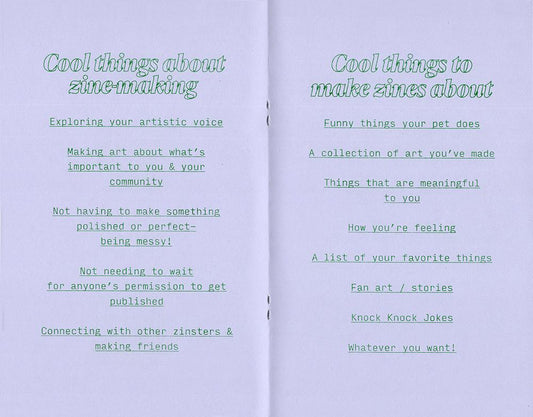 Cool things about
zine-making
Exploring your artistic voice
Making art about what's
important to you & your
community
Not having to make something
polished or perfect–
being messy!
Not needing to wait
for anyone's permission to get
published
Connecting with other zinsters &
making friends
Cool things to
make zines about
Funny things your pet does
A collection of art you've made
Things that are meaningful
to you
How you're feeling
A list of your favorite things
Fan art / stories
Knock Knock Jokes
Whatever you want!